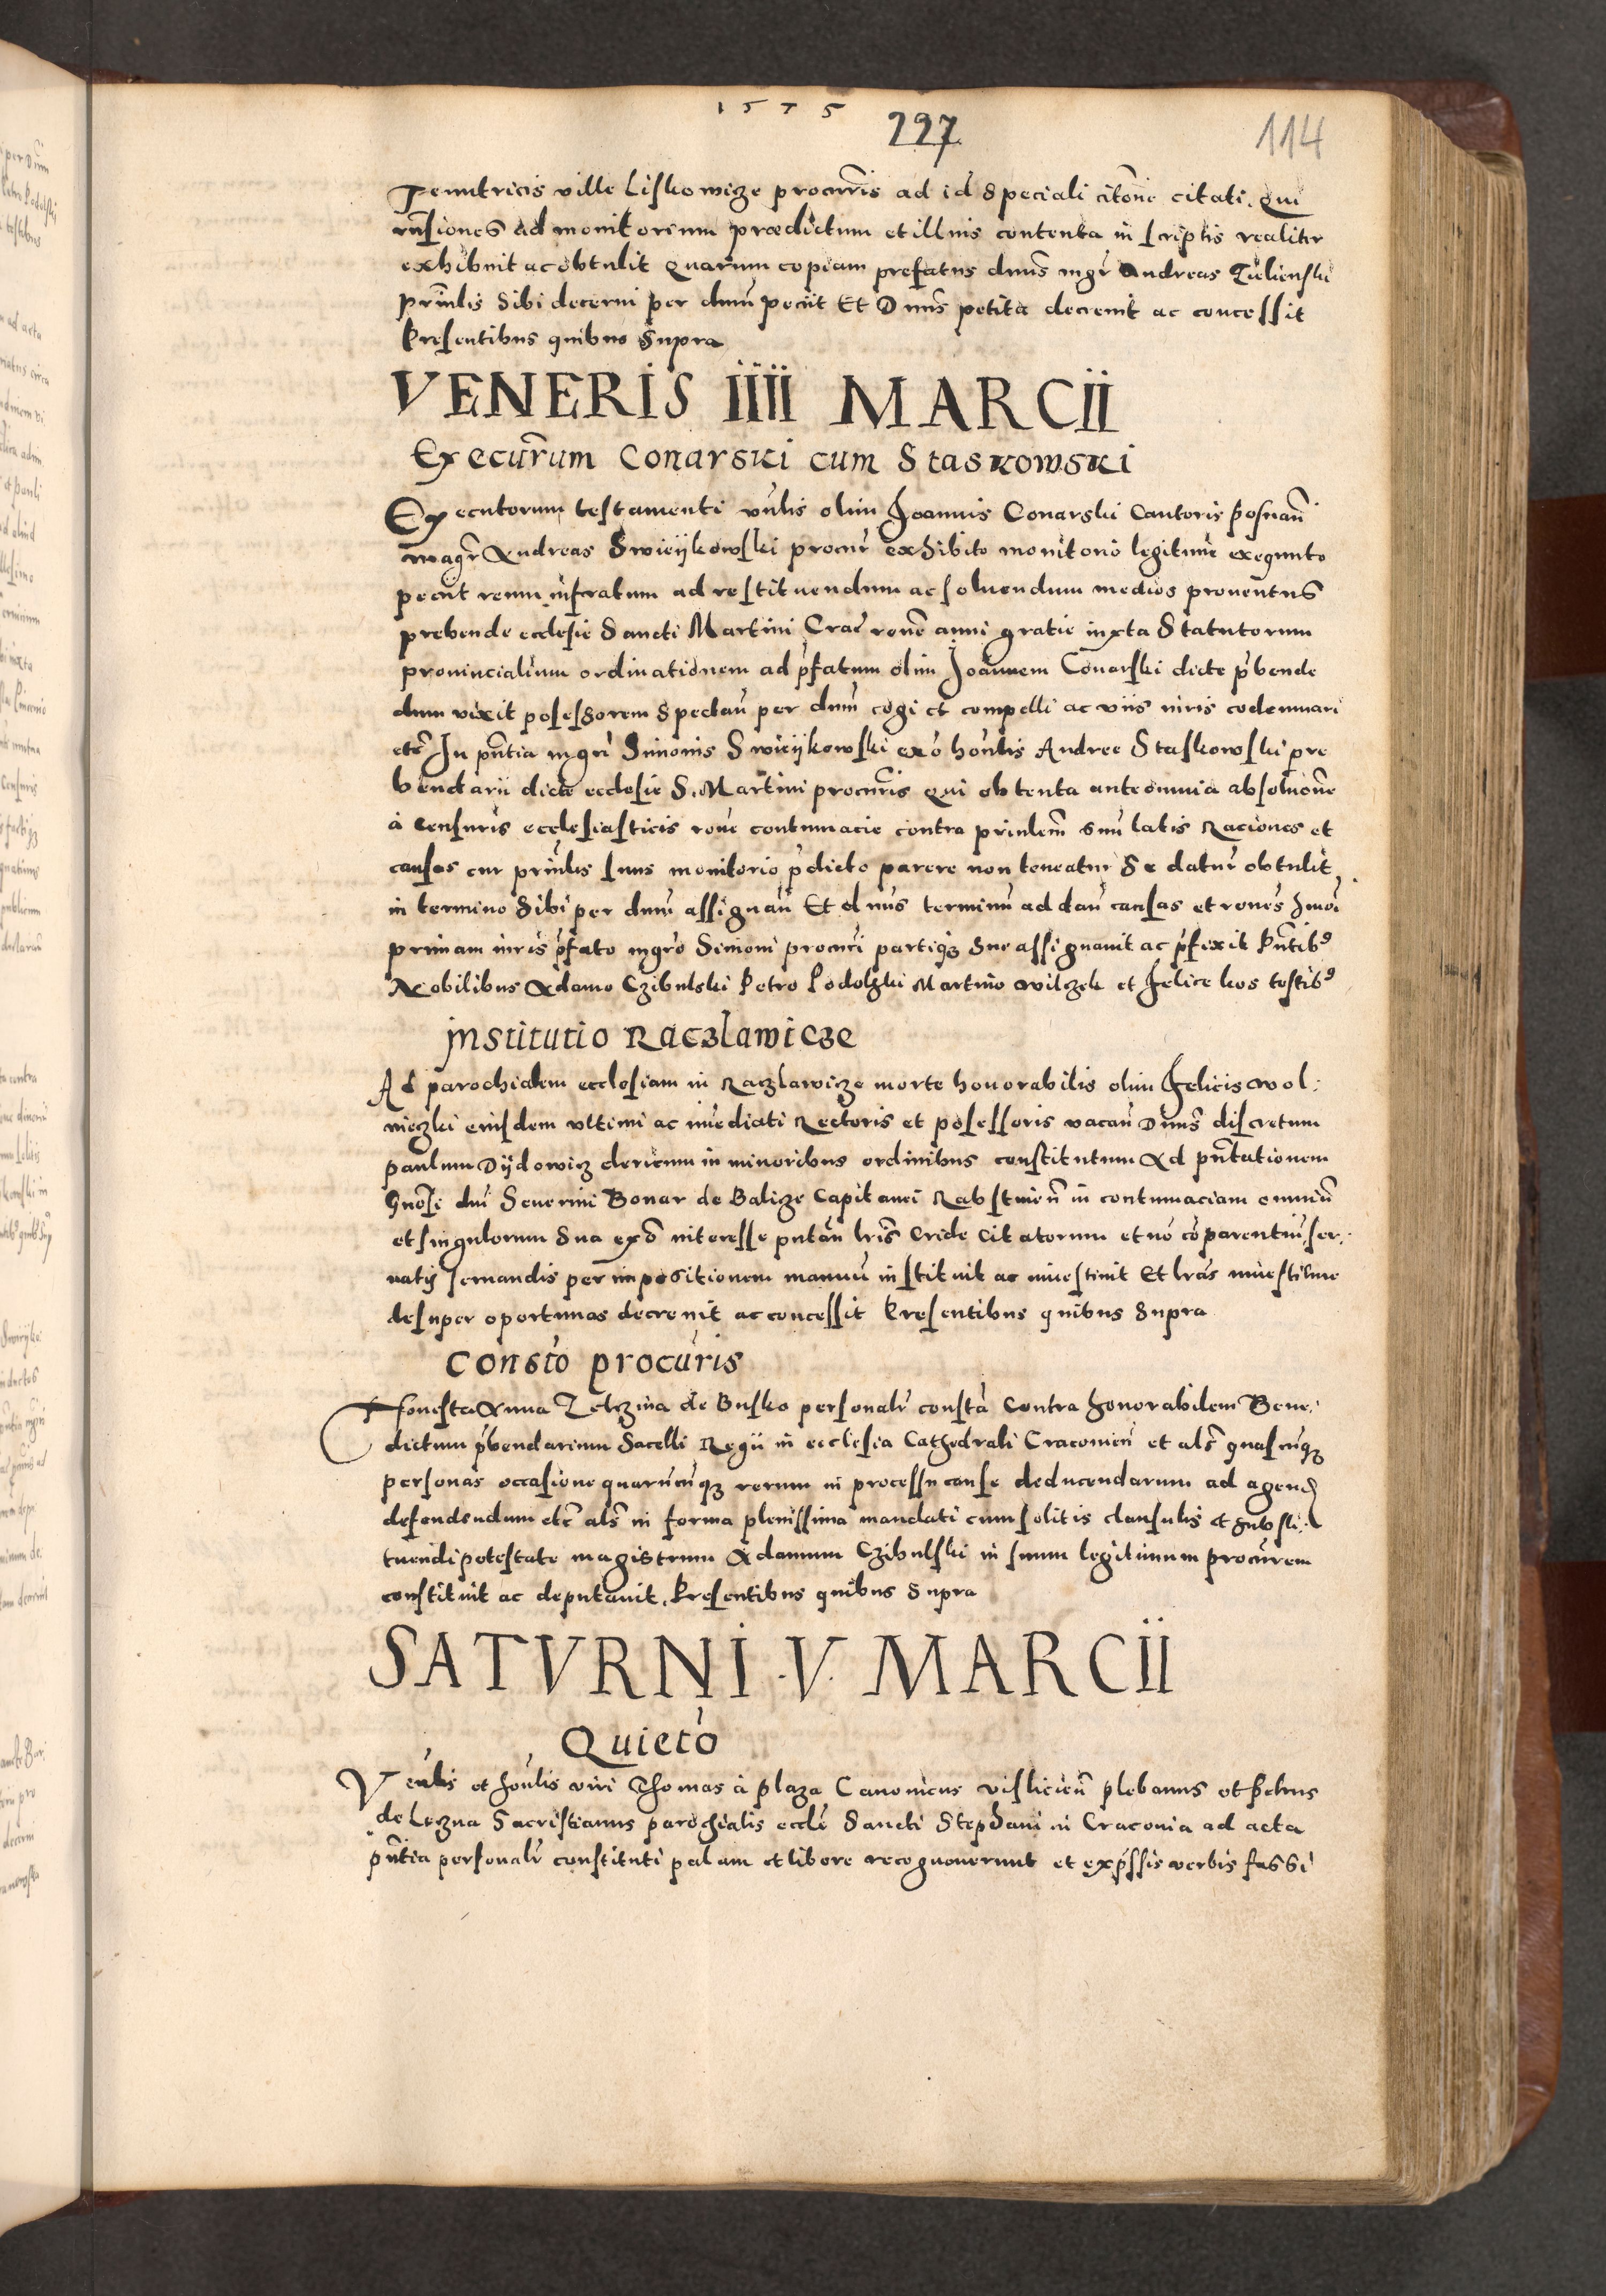 1575
227
114
Tenutricis ville Liskowicze procuris ad id speciali citone citati. Qui
rnsiones ad monitorium praedictum et illius contenta in scriptis realiter
exhibuit ac obtulit Quarum copiam prefatus dnus mgr Andreas
prinlis sibi decerni per dnum peciit Et Dnus petita decrevit ac concessit
Presentibus quibus supra
VENERIS IIII MARCII
Executrum Conarski cum Staskowski
Executorum testamenti vnlis olim Joannis Conarski Cantoris posnan
magr Andreas Swieijkowski procur exhibito monitorio legitime exequuto
peciit reum infratum ad restituendum ac soluendum medios prouentus
prebende ecclesie Sancti Martini Crac rone anni gratie iuxta Statutorum
prouincialium ordinationem ad pfatum olim Joannem Conarski dicte pbende
dum vixit posessorem spectan per dnum cogi et compelli ac viis iuris codemnari
etc In pntia mgri Simonis Swieijkowski exo honlis Andree Staskowski pre
bendarii dicte ecclesie S. Martini procuris Qui obtenta ante omnia absoluone
à Censuris ecclesiasticis rone contumacie contra prinlem suu latis Raciones et
causas cur prinlis suus monitorio pdicto parere non teneatur se datur obtulit,
in termino sibi per dnum assignan Et dnus terminu ad dan causas et rones hmoi
primam iuris pfato mgro Simoni procuri partiqz sue assignauit ac pfixit Pntibus
Nobilibus Adamo Czibulski Petro Podolski Martino Wilczek et Felice kos testibus
Institutio Raczlawicze
Ad parochialem ecclesiam in Raczlawicze morte honorabilis olim Felicis Wol:
niczki eiusdem vltimi ac imediati Rectoris et posessoris vacan Dnus discretum
paulum Dijdowicz clericum in minoribus ordinibus constitutum Ad pntationem
Gnosi dni Seuerini Bonar de Balicze Capitanei Rabstinen in contumaciam omnium
et singulorum sua exo interesse putan lris Cride citatorum et no coparentiu, ser:
vatis seruandis per impositionem manuu instituit ac inuestiuit Et lras inuestiture
desuper oportunas decreuit ac concessit Presentibus quibus supra
Consto procuris
Honesta Anna de Busko personalr consta Contra honorabilem Bene:
dictum pbendarium Sacelli Regii in ecclesia Cathedrali Cracouien et als quascuqz
personas occasione quarucuqz rerum in processu cause deducendarum ad agend
defendendum etc als in forma plenissima mandati cum solitis clausulis et substi:
tuendi potestate magistrum Adamum Czibulski in suum legitimum procurem
constituit ac deputauit. Presentibus quibus supra
SATVRNI .V. MARCII
Quieto
Venlis et honlis viri Thomas à plaza Canonicus vislicien plebanus et petrus
de Lezna Sacristianus parochialis eccle Sancti Stephani in Cracouia ad acta
pntia personalr constituti palam et libere recognouerunt et expssis verbis fassi